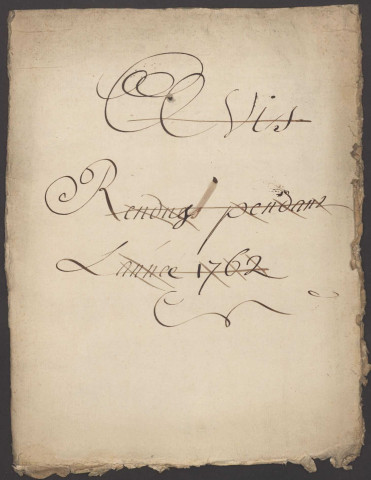 Avis
Rendus pendant
L'année 1762